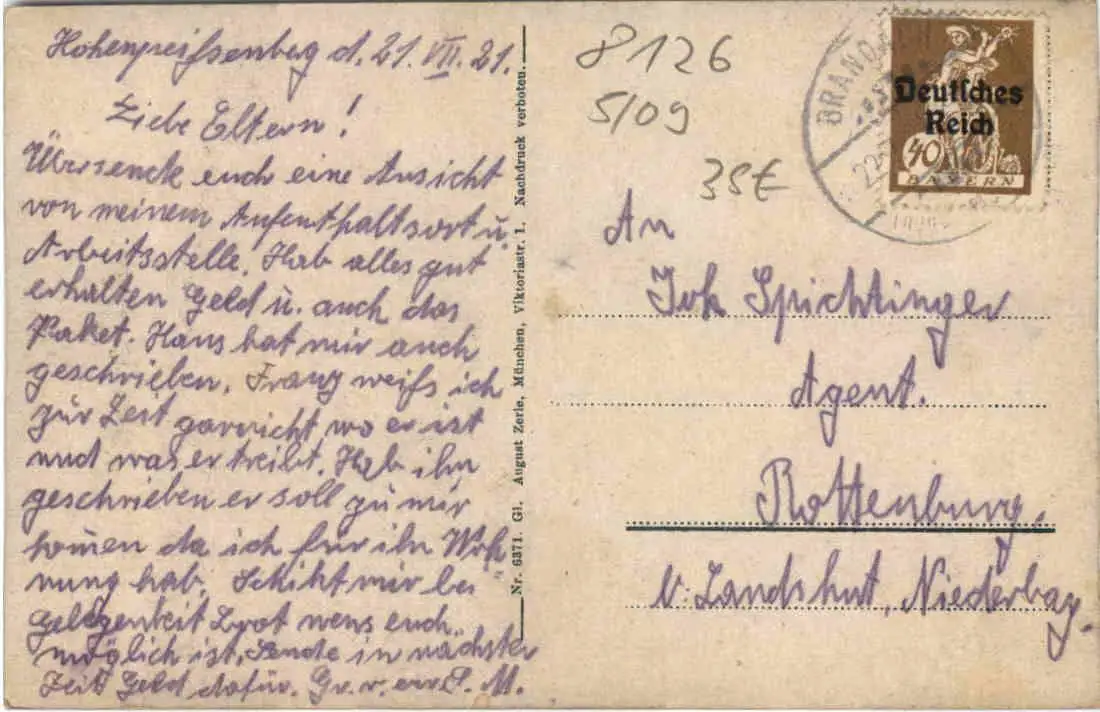 Hohenpeißenberg d. 21. VII. 21.
Liebe Eltern!
Übersencke euch eine Ansicht
von meinem Aufenthaltsort u.
Arbeitsstelle. Hab alles gut
erhalten Geld u. auch das
Paket. Hans hat mir auch
geschrieben. Franz weiß ich
zur Zeit garnicht wo er ist
und was er treibt. Hab ihn
geschrieben er soll zu mir
kom̄en da ich für ihn Woh
nung hab. Schikt mir bei
Gelegenheit Brot wens euch
möglich ist. Sende in nächster
Zeit Geld dafür. Gr. v. eur. S. M.
Nr. 6371. Gl. August Zerle, München, Viktoriastr. 1. Nachdruck verboten.
8126
5/09
35€
BRAND
22
Deutsches
Reich
40
BAYERN
An
Joh Spichtinger
Agent.
Rottenburg.
b: Landshut, Niederbay.